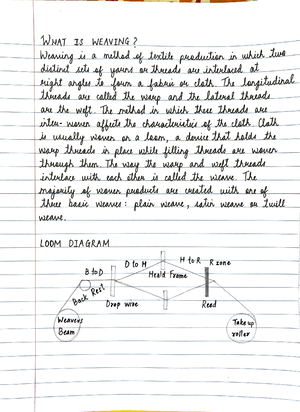 WHAT IS WEAVING?
Weaving is a method of textile production in which two
distinct sets of yarns or threads are interlaced at
right angles to form a fabric or cloth. The longitudinal
threads are called the warp and the lateral threads
are the weft. The method in which these threads are
inter-woven affects the characteristics of the cloth. Cloth
is usually woven on a loom, a device that holds the
warp threads in place while filling threads are woven
through them. The way the warp and weft threads
interlace with each other is called the weave. The
majority of woven products are created with one of
three basic weaves: plain weave, satin weave or twill
weave.
LOOM DIAGRAM
B to D
D to H
H to R
R zone
Heald Frame
Back Rest
Drop wire
Reed
Weavers
Beam
Take up
roller